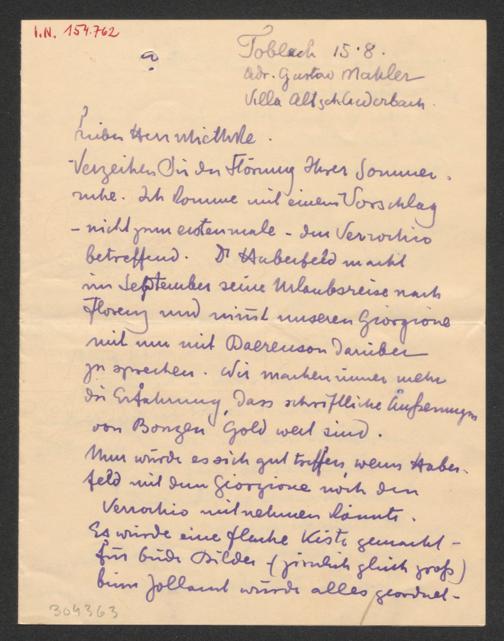 I.N. 154.762
?
Toblach 15.8.
Adr. Gustav Mahler
Villa Altschluderbach.
Lieber Herr Miethke.
Verzeihen Sie der Störung Ihrer Sommer-
ruhe. Ich komme mit einem Vorschlag
– nicht zum erstenmale – den Verrochio
betreffend. Dr Haberfeld macht
im September seine Urlaubsreise nach
Florenz und nimt unseren Giorgione
mit um mit Baerenson darüber
zu sprechen. Wir machen immer mehr
die Erfahrung, dass schriftliche Äußerungen
von Bonzen Gold wert sind.
Nun würde es sich gut treffen, wenn Haber-
feld mit dem Giorgione noch den
Verrochio mitnehmen könnte.
Es würde eine flache Kiste gemacht –
für beide Bilder – (ziemlich gleich groß)
beim Zollamt würde alles geordnet –
304363